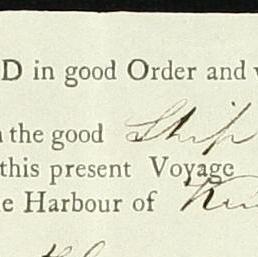 D in good Order and
the good Ship
this present Voyage
e Harbour of